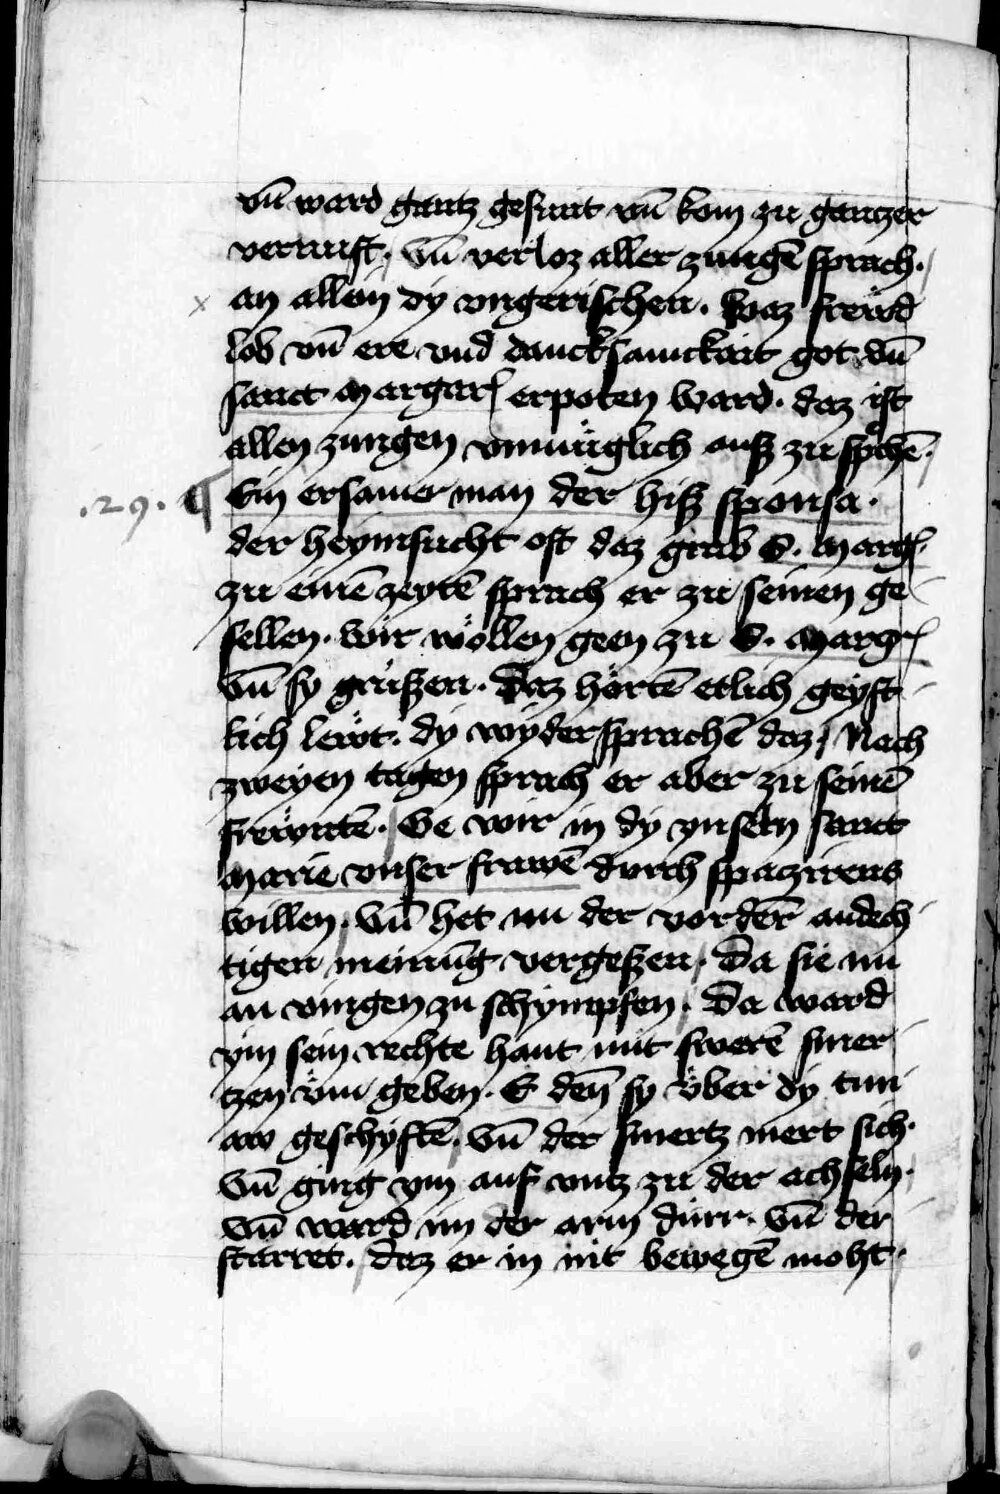 vn̄ ward gantz gesunt vn̄ kom zu gantzer
vernunft. Vn̄ verloz aller zungē sprach.
an allein dy vngerischen. Waz frewd
lob vn̄ ere vnd dancksamckait got vn̄
sanct Margar erpoten ward. daz ist
allen zungen vnmüglich auß zu sp̄chē.
.29. ¶ Ein ersamer man der hiß sponsa.
der heymsucht oft daz grab S. Marg.
zu einē zeytē sprach er zu seinen ge
sellen. wir wöllen geen zu S. Marg
vn̄ sy grüßen. Daz hörtē etlich geyst
lich lewt. dy wydersprachē daz. Nach
zweyen tagen sprach er aber zu seinē
frewntē. Ge wir in dy ynseln sanct
Marie vnser frawē durch spaczirens
willen. Vn̄ het nu der vorderē andech
tigen meinūg vergeßen. Da sie nu
an vingen zu schympfen. Da ward
ym sein rechte hant mit swerē smer
tzen vm geben. E den̄ sy vber dy tun
aw geschyftē. Vn̄ der smertz mert sich.
Vn̄ ging ym auf vntz zu der achseln.
vn̄ ward im der arm dürr. Vn̄ der
starret. daz er in nit bewegē moht.